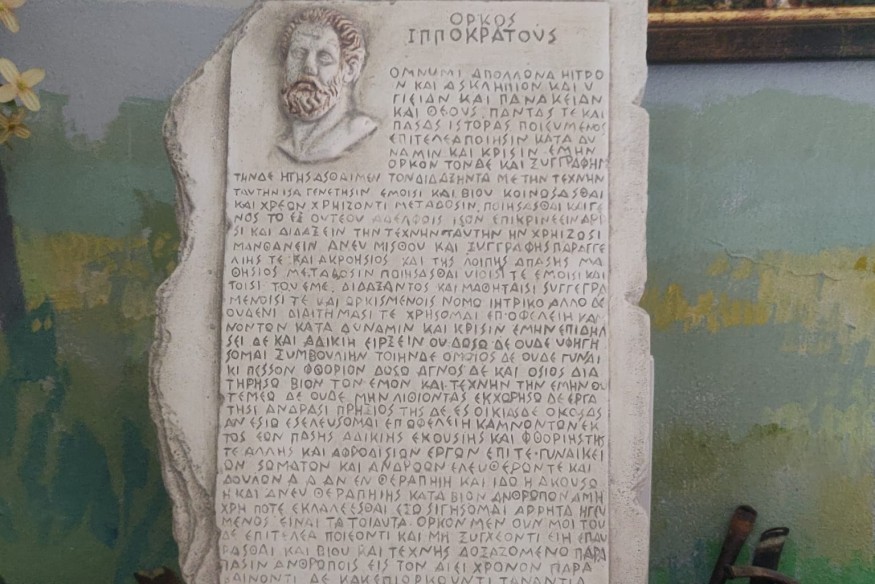 ΟΡΚΟΣ
ΙΠΠΟΚΡΑΤΟΥΣ
ΟΜΝΥΜΙ ΑΠΟΛΛΩΝΑ ΗΙΤΡΟ
Ν ΚΑΙ ΑΣΚΛΗΠΙΟΝ ΚΑΙ Υ
ΓΙΕΙΑΝ ΚΑΙ ΠΑΝΑΚΕΙΑΝ
ΚΑΙ ΘΕΟΥΣ ΠΑΝΤΑΣ ΤΕ ΚΑΙ
ΠΑΣΑΣ ΙΣΤΟΡΑΣ ΠΟΙΕΥΜΕΝΟΣ
ΕΠΙΤΕΛΕΑ ΠΟΙΗΣΙΝ ΚΑΤΑ ΔΥ
ΝΑΜΙΝ ΚΑΙ ΚΡΙΣΙΝ ΕΜΗΝ
ΟΡΚΟΝ ΤΟΝΔΕ ΚΑΙ ΖΥΓΓΡΑΦΗΝ
ΤΗΝΔΕ ΗΓΗΣΑΣΘΑΙ ΜΕΝ ΤΟΝ ΔΙΔΑΞΗΝΤΑ ΜΕ ΤΗΝ ΤΕΧΝΗΝ
ΤΑΥΤΗΝ ΙΣΑ ΓΕΝΕΤΗΣΙΝ ΕΜΟΙΣΙ ΚΑΙ ΒΙΟΥ ΚΟΙΝΟΣΑΣΘΑΙ
ΚΑΙ ΧΡΕΟΝ ΧΡΗΙΖΟΝΤΙ ΜΕΤΑΔΟΣΙΝ ΠΟΙΗΣΑΣΘΑΙ ΚΑΙ ΓΕ
ΝΟΣ ΤΟ ΕΞ ΟΥΤΕΟΥ ΑΔΕΛΦΟΙΣ ΙΣΟΝ ΕΠΙΚΡΙΝΕΕΙΝ ΑΡΙ
ΣΙ ΚΑΙ ΔΙΔΑΞΕΙΝ ΤΗΝ ΤΕΧΝΗΝ ΤΑΥΤΗΝ ΗΝ ΧΡΗΙΖΟΣΙ
ΜΑΝΘΑΝΕΙΝ ΑΝΕΥ ΜΙΣΘΟΥ ΚΑΙ ΞΥΓΓΡΑΦΗΣ ΠΑΡΑΓΓΕ
ΛΙΗΣ ΤΕ ΚΑΙ ΑΚΡΟΗΣΙΟΣ ΚΑΙ ΤΗΣ ΛΟΙΠΗΣ ΑΠΑΣΗΣ ΜΑ
ΘΗΣΙΟΣ ΜΕΤΑΔΟΣΙΝ ΠΟΙΗΣΑΣΘΑΙ ΥΙΟΙΣΙ ΤΕ ΕΜΟΙΣΙ ΚΑΙ
ΤΟΙΣΙ ΤΟΥ ΕΜΕ ΔΙΔΑΞΑΝΤΟΣ ΚΑΙ ΜΑΘΗΤΑΙΣΙ ΣΥΓΓΕΓΡΑ
ΜΕΝΟΙΣΙ ΤΕ ΚΑΙ ΩΡΚΙΣΜΕΝΟΙΣ ΝΟΜΟ ΙΗΤΡΙΚΟ ΑΛΛΟ ΔΕ
ΟΥΔΕΝΙ ΔΙΑΙΤΗΜΑΣΙ ΤΕ ΧΡΗΣΟΜΑΙ ΕΠ ΟΦΕΛΕΙΗ ΚΑΜ
ΝΟΝΤΩΝ ΚΑΤΑ ΔΥΝΑΜΙΝ ΚΑΙ ΚΡΙΣΙΝ ΕΜΗΝ ΕΠΙ ΔΗΛ
ΣΕΙ ΔΕ ΚΑΙ ΑΔΙΚΙΗ ΕΙΡΞΕΙΝ ΟΥ ΔΩΣΩ ΔΕ ΟΥΔΕ ΥΦΗΓΗ
ΣΟΜΑΙ ΞΥΜΒΟΥΛΙΗΝ ΤΟΙΗΝΔΕ ΟΜΟΙΟΣ ΔΕ ΟΥΔΕ ΓΥΝΑΙ
ΚΙ ΠΕΣΣΟΝ ΦΘΟΡΙΟΝ ΔΩΣΩ ΑΓΝΟΣ ΔΕ ΚΑΙ ΟΣΙΟΣ ΔΙΑ
ΤΗΡΗΣΩ ΒΙΟΝ ΤΟΝ ΕΜΟΝ ΚΑΙ ΤΕΧΝΗΝ ΤΗΝ ΕΜΗΝ ΟΥ
ΤΕΜΕΩ ΔΕ ΟΥΔΕ ΜΗΝ ΛΙΘΙΟΝΤΑΣ ΕΚΧΩΡΗΣΩ ΔΕ ΕΡΓΑ
ΤΗΣΙ ΑΝΔΡΑΣΙ ΠΡΗΞΙΟΣ ΤΗΣ ΔΕ ΕΣ ΟΙΚΙΑΣ ΔΕ ΟΚΟΣΑΣ
ΑΝ ΕΣΙΩ ΕΣΕΛΕΥΣΟΜΑΙ ΕΠ ΩΦΕΛΕΙΗ ΚΑΜΝΟΝΤΩΝ ΕΚ
ΤΟΣ ΕΩΝ ΠΑΣΗΣ ΑΔΙΚΙΗΣ ΕΚΟΥΣΙΗΣ ΚΑΙ ΦΘΟΡΙΗΣ ΤΗΣ
ΤΕ ΑΛΛΗΣ ΚΑΙ ΑΦΡΟΔΙΣΙΩΝ ΕΡΓΩΝ ΕΠΙ ΤΕ ΓΥΝΑΙΚΕΙ
ΩΝ ΣΩΜΑΤΩΝ ΚΑΙ ΑΝΔΡΩΩΝ ΕΛΕΥΘΕΡΩΝ ΤΕ ΚΑΙ
ΔΟΥΛΩΝ Α Δ ΑΝ ΕΝ ΘΕΡΑΠΗΙΗ ΚΑΙ ΙΔΩ Η ΑΚΟΥΣΩ
Η ΚΑΙ ΑΝΕΥ ΘΕΡΑΠΗΙΗΣ ΚΑΤΑ ΒΙΟΝ ΑΝΘΡΩΠΩΝ Α ΜΗ
ΧΡΗ ΠΟΤΕ ΕΚΛΑΛΕΕΣΘΑΙ ΕΞΩ ΣΙΓΗΣΟΜΑΙ ΑΡΡΗΤΑ ΗΓΕΥ
ΜΕΝΟΣ ΕΙΝΑΙ ΤΑ ΤΟΙΑΥΤΑ ΟΡΚΟΝ ΜΕΝ ΟΥΝ ΜΟΙ ΤΟΥ
ΔΕ ΕΠΙΤΕΛΕΑ ΠΟΙΕΟΝΤΙ ΚΑΙ ΜΗ ΖΥΓΧΕΟΝΤΙ ΕΙΗ ΕΠΑΥ
ΡΑΣΘΑΙ ΚΑΙ ΒΙΟΥ ΚΑΙ ΤΕΧΝΗΣ ΔΟΞΑΖΟΜΕΝΟ ΠΑΡΑ
ΠΑΣΙΝ ΑΝΘΡΩΠΟΙΣ ΕΙΣ ΤΟΝ ΑΙΕΙ ΧΡΟΝΟΝ ΠΑΡΑ
ΒΑΙΝΟΝΤΙ ΔΕ ΚΑΙ ΕΠΙΟΡΚΟΥΝΤΙ ΤΑΝΑΝΤΙΑ